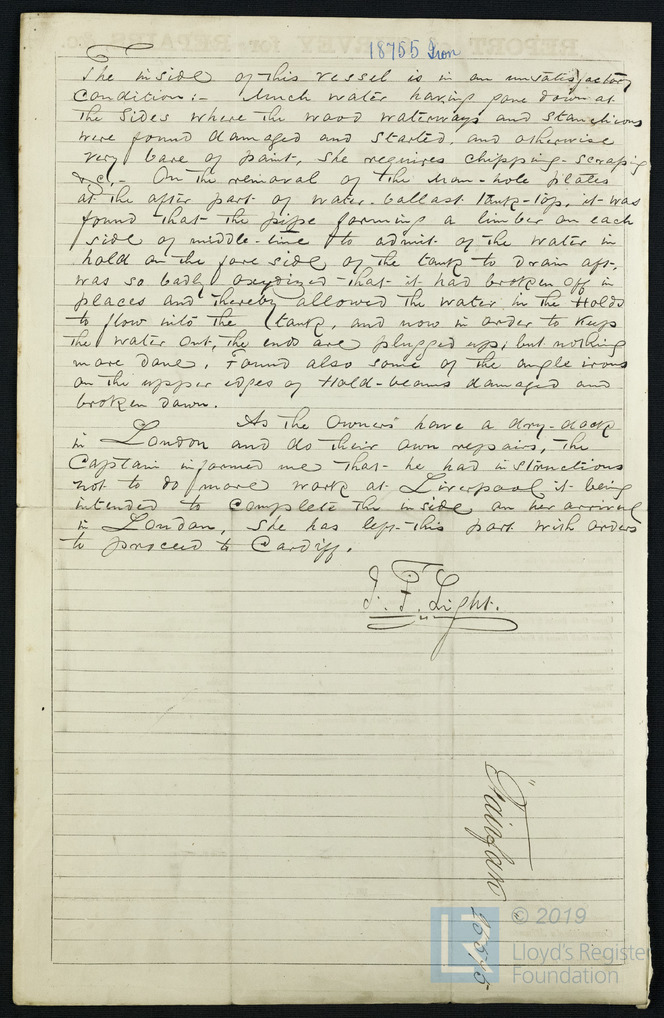 18755 Iron
The inside of this vessel is in an unsatisfactory
condition:- Much water having gone down at
the sides where the wood waterways and stanchions
were found damaged and started, and otherwise
very bare of paint, she requires chipping-scraping
&c.- On the removal of the Man-hole plates
at the after part of water-ballast tank-top, it was
found that the pipe forming a limber on each
side of middle-line to admit of the water in
hold on the fore side of the tank to drain aft,
was so badly oxydized that it had broken off in
places and thereby allowed the water in the Holds
to flow into the tank, and now in order to keep
the water out, the ends are plugged up, but nothing
more done. Found also some of the angle irons
on the upper edges of Hold-beams damaged and
broken down.
As the Owners have a dry-dock
in London and do their own repairs, the
Captain informed me that he had instructions
not to do more work at Liverpool it being
intended to complete the inside on her arrival
in London, she has left this port with orders
to proceed to Cardiff.
J. F. Light.
REPORT of SURVEY for REPAIRS, &c.
© 2019
Lloyd's Register
Foundation
LR